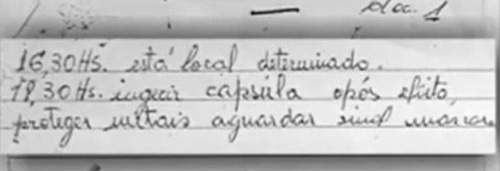 doc. 1
16,30 Hs. está local determinado.
18,30 Hs. ingerir capsúla após efeito,
proteger metais aguardar sinal mascara